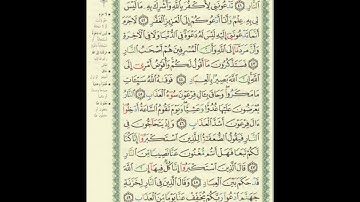 ٱلنَّارِ ٤١ تَدْعُونَنِي لِأَكْفُرَ بِٱللَّهِ وَأُشْرِكَ بِهِۦ مَا لَيْسَ
لِي بِهِۦ عِلْمٌ وَأَنَا۠ أَدْعُوكُمْ إِلَى ٱلْعَزِيزِ ٱلْغَفَّٰرِ ٤٢ لَا جَرَمَ
أَنَّمَا تَدْعُونَنِيٓ إِلَيْهِ لَيْسَ لَهُۥ دَعْوَةٌ فِي ٱلدُّنْيَا وَلَا فِي ٱلْءَاخِرَةِ
وَأَنَّ مَرَدَّنَآ إِلَى ٱللَّهِ وَأَنَّ ٱلْمُسْرِفِينَ هُمْ أَصْحَٰبُ ٱلنَّارِ
٤٣ فَسَتَذْكُرُونَ مَآ أَقُولُ لَكُمْ وَأُفَوِّضُ أَمْرِيٓ إِلَى
ٱللَّهِ إِنَّ ٱللَّهَ بَصِيرٌۢ بِٱلْعِبَادِ ٤٤ فَوَقَىٰهُ ٱللَّهُ سَيِّـَٔاتِ
مَا مَكَرُوا۟ وَحَاقَ بِـَٔالِ فِرْعَوْنَ سُوٓءُ ٱلْعَذَابِ ٤٥ ٱلنَّارُ
يُعْرَضُونَ عَلَيْهَا غُدُوًّا وَعَشِيًّا وَيَوْمَ تَقُومُ ٱلسَّاعَةُ أَدْخِلُوٓا۟
ءَالَ فِرْعَوْنَ أَشَدَّ ٱلْعَذَابِ ٤٦ وَإِذْ يَتَحَآجُّونَ فِي
ٱلنَّارِ فَيَقُولُ ٱلضُّعَفَٰٓؤُا۟ لِلَّذِينَ ٱسْتَكْبَرُوٓا۟ إِنَّا كُنَّا
لَكُمْ تَبَعًا فَهَلْ أَنتُم مُّغْنُونَ عَنَّا نَصِيبًا مِّنَ ٱلنَّارِ
٤٧ قَالَ ٱلَّذِينَ ٱسْتَكْبَرُوٓا۟ إِنَّا كُلٌّ فِيهَآ إِنَّ ٱللَّهَ
قَدْ حَكَمَ بَيْنَ ٱلْعِبَادِ ٤٨ وَقَالَ ٱلَّذِينَ فِي ٱلنَّارِ لِخَزَنَةِ
جَهَنَّمَ ٱدْعُوا۟ رَبَّكُمْ يُخَفِّفْ عَنَّا يَوْمًا مِّنَ ٱلْعَذَابِ ٤٩